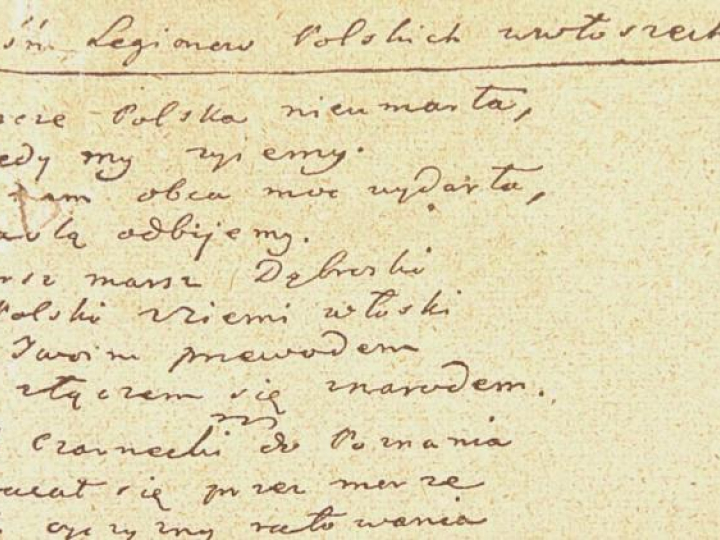 śń Legionow Polskich wewłoszech
cze Polska nieumarła,
edy my żyiemy.
nam obca moc wydarła,
ablą odbijemy.
rsz marsz Dąbroski
Polski zZiemi włoski
Twoim przewodem
złączem się znarodem.
Czarnecki do Poznania
acał się przez morze
oyczyzny ratowania